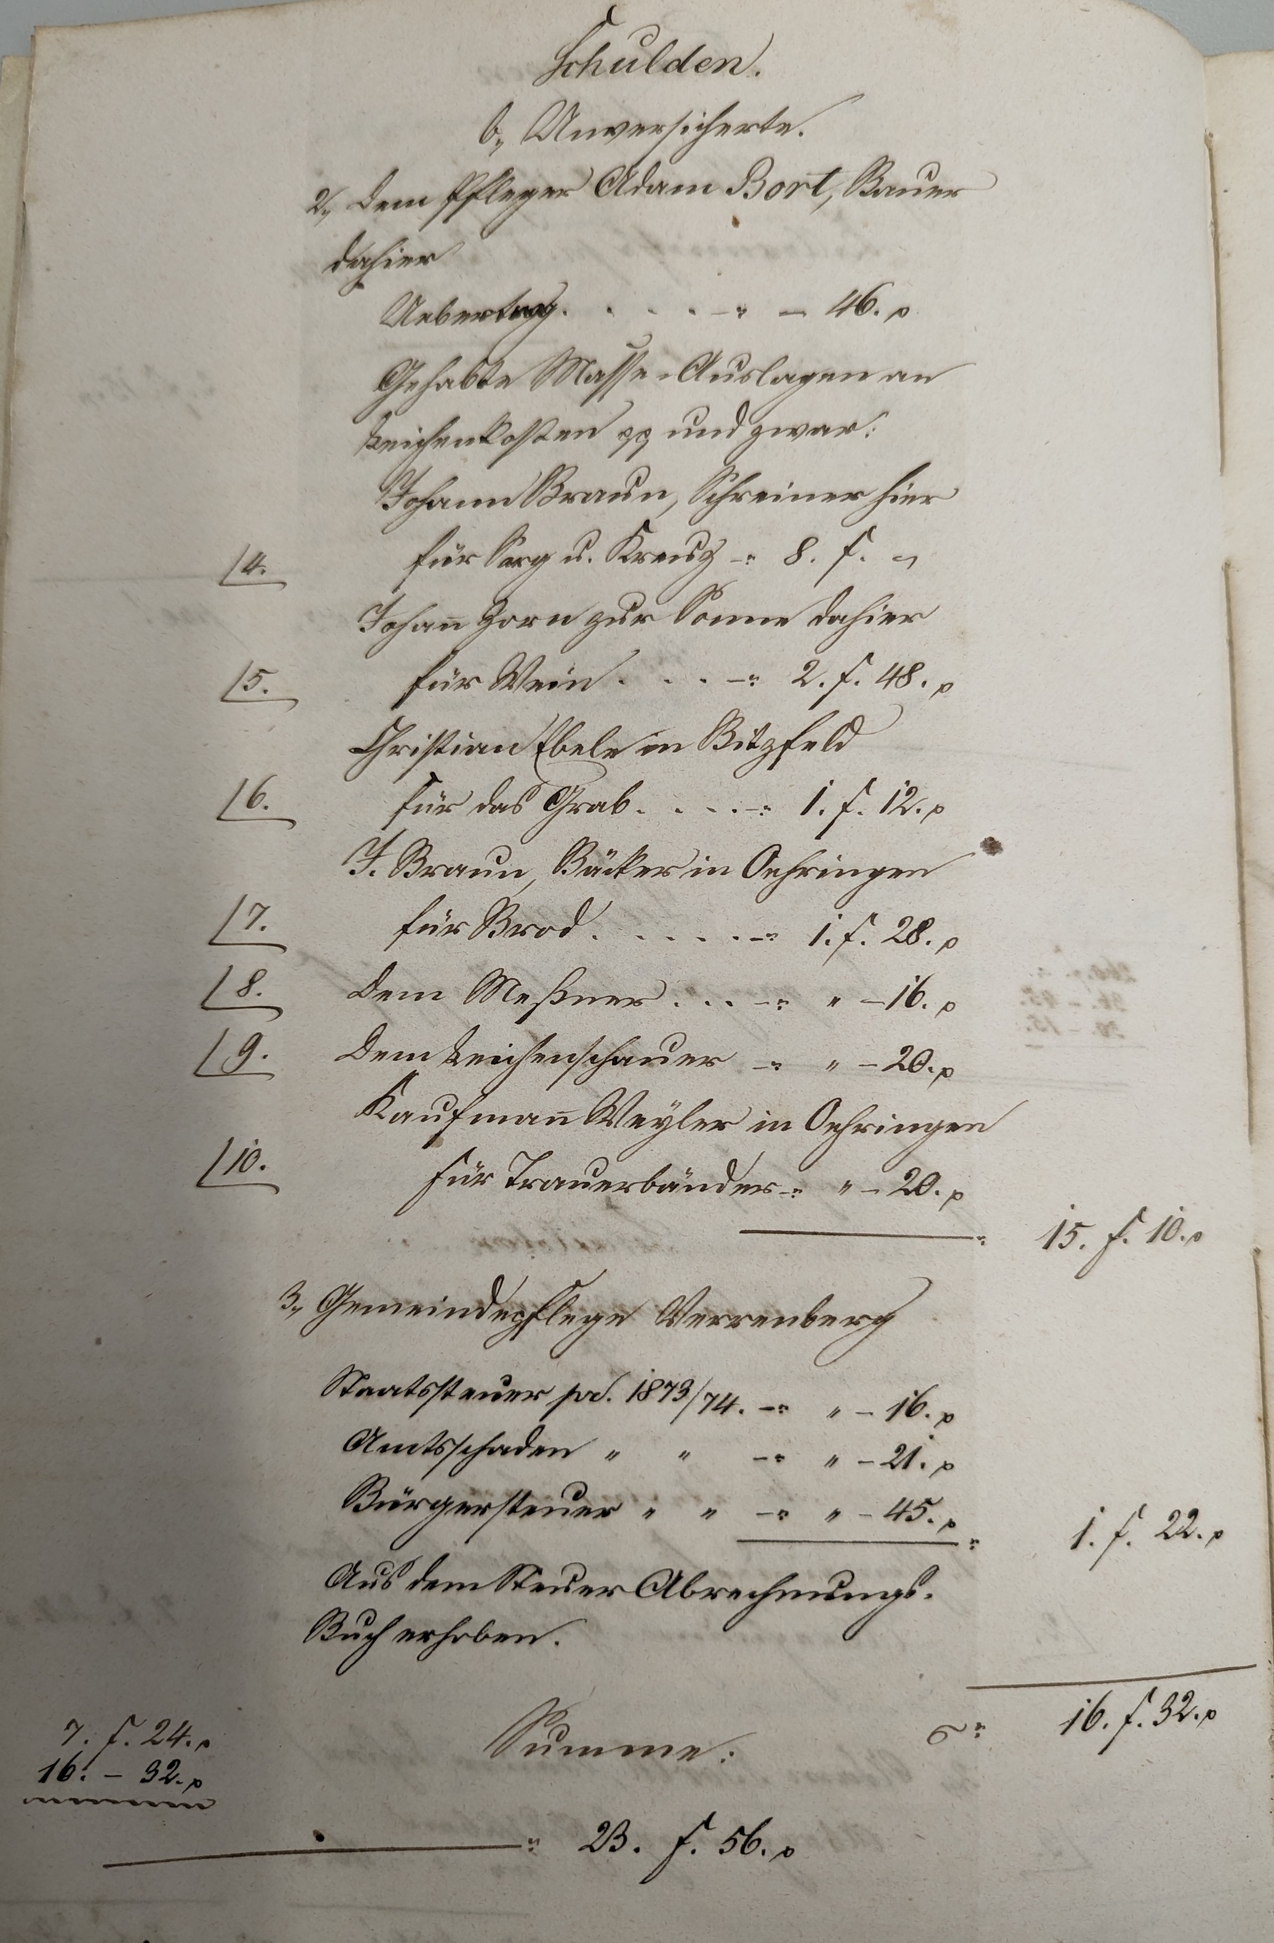 Schulden.
b., Unversicherte.
2., dem Pfleger Adam Bort, Bauer
dahier
Uebertrag. . . . . -" — 46. x
Gehabte Masse-Auslagen an
Leichenkosten pp und zwar:
Johann Braun, Schreiner hier
/4. für Sarg u. Kreuz -" 8. f. "
Johan̄ Horn zur Sonne dahier
/5. für Wein. . . . -" 2. f. 48. x
Christian Ebele in Bitzfeld
/6. für das Grab. . . . -" 1. f. 12. x
J. Braun, Bäcker in Oehringen
/7. für Brod. . . . . . -" 1. f. 28. x
/8. dem Meßner . . . -" " — 16. x
/9. dem Leichenschauer -" " — 20. x
Kaufman̄ Weyler in Oehringen
/10. für Trauerbänder -" " — 20. x
" 15. f. 10. x
3., Gemeindepflege Verrenberg
Staatssteuer pro. 1873/74. -" " — 16. x
Amtsschaden " " -" " — 21. x
Bürgersteuer " " -" " — 45. x
" 1. f. 22. x
Aus dem Steuer Abrechnungs-
Buch erhoben.
Summe: " 16. f. 32. x
7. f. 24. x
16. — 32. x
" 23. f. 56. x